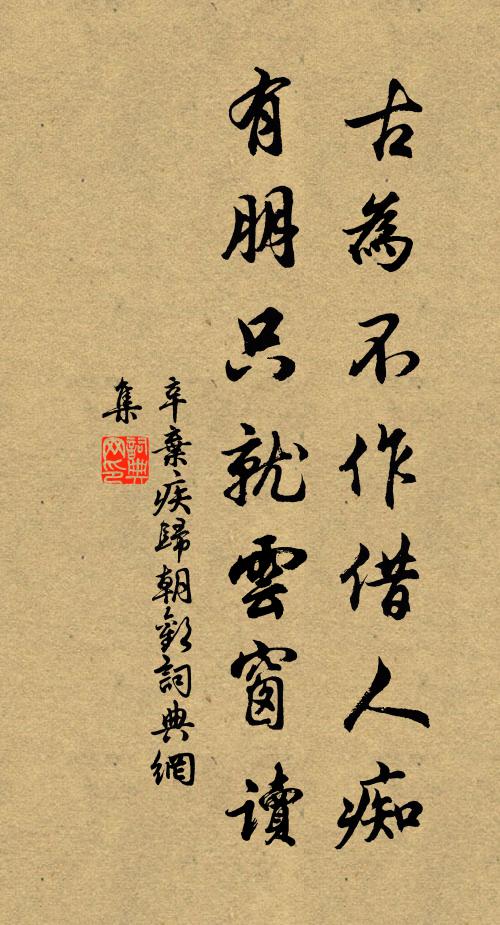 古為不作借人痴
有朋只就雲窗讀
辛棄疾歸朝歡詞典網
集
詞典網印